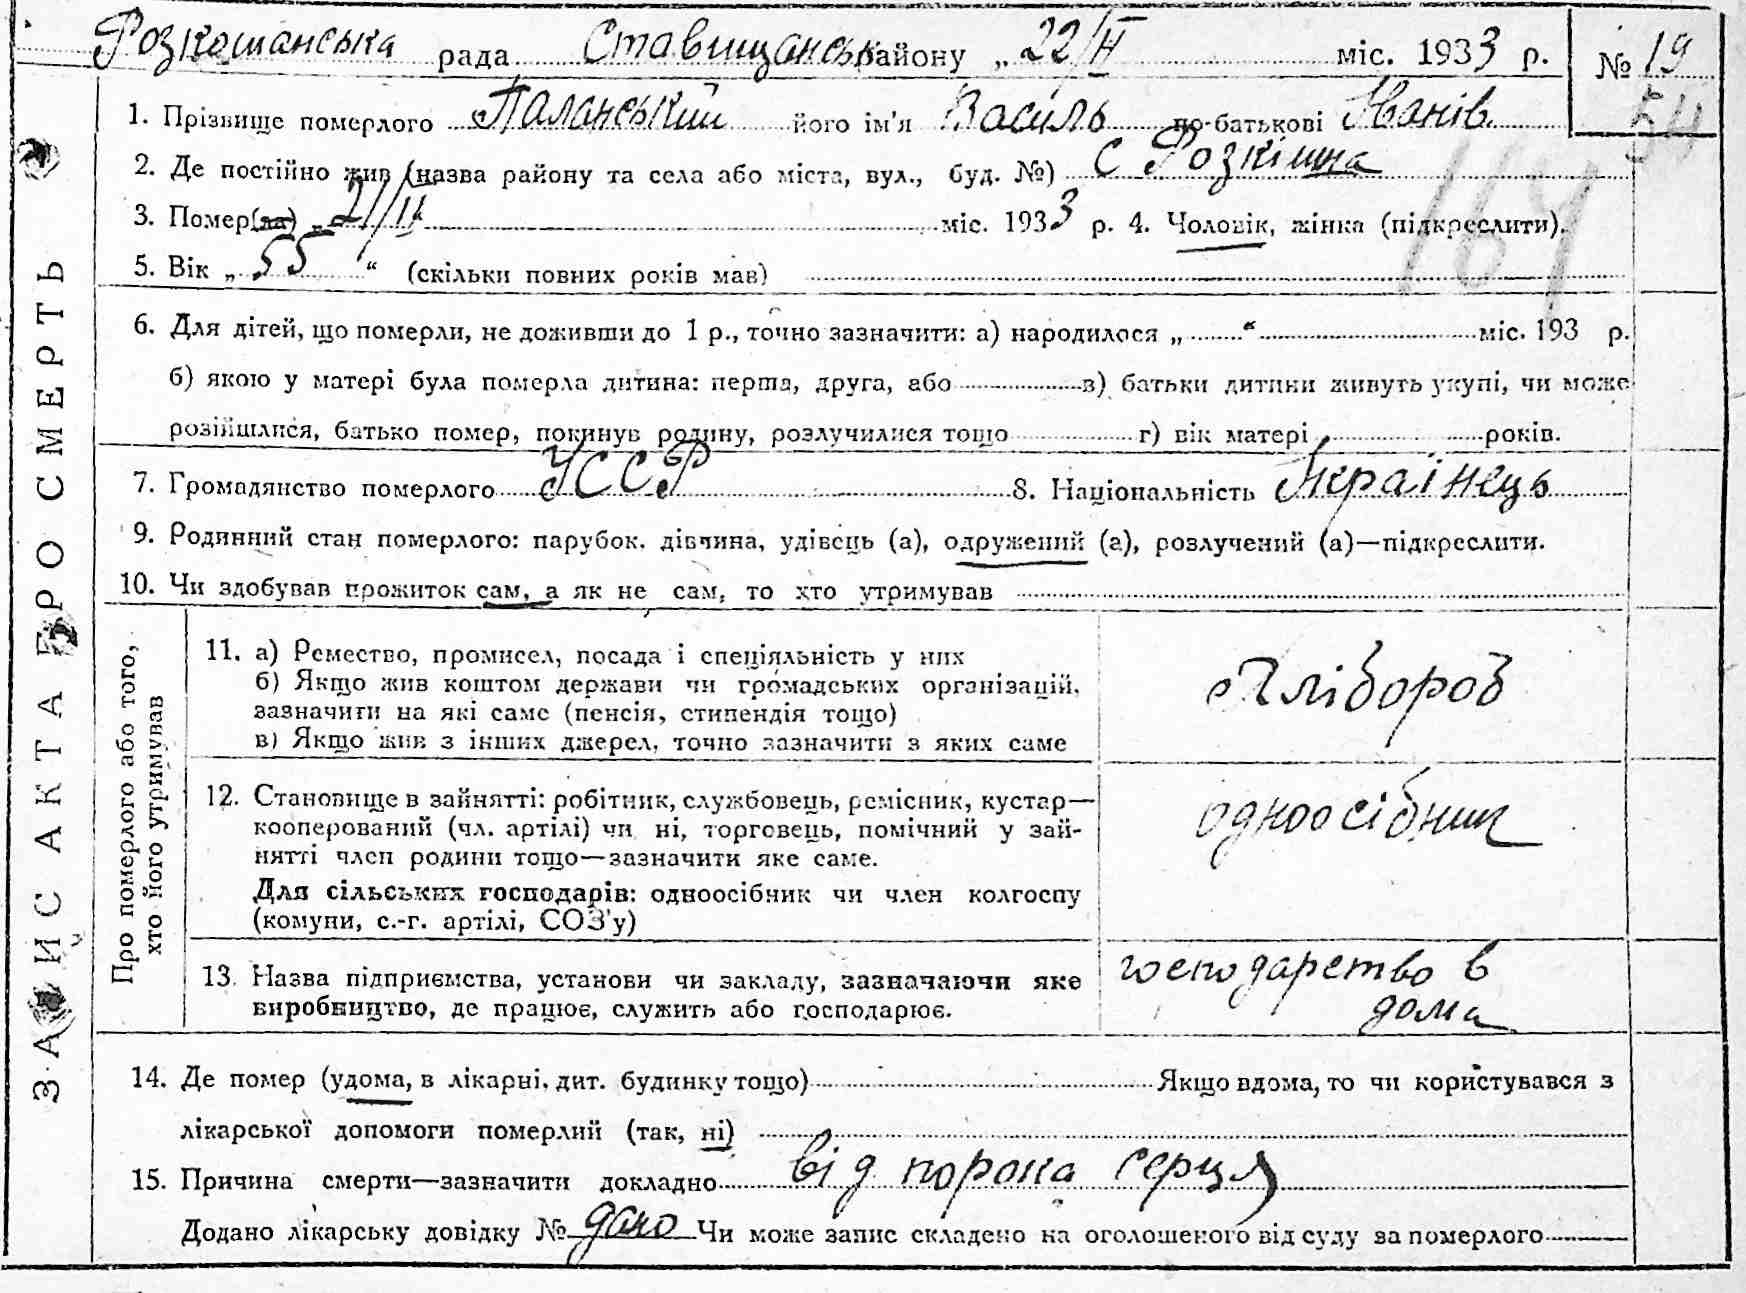 Розкошанська рада Ставищанськ району „ 22/II міс. 1933 р. № 19
1. Прізвище померлого Паланський його ім'я Василь по-батькові Іванів 54
2. Де постійно жив (назва району та села або міста, вул., буд. №) с Розкішна
3. Помер(ла) „ 21/II міс. 1933 р. 4. Чоловік, жінка (підкреслити).
164
5. Вік „ 55 “ (скільки повних років мав)
6. Для дітей, що померли, не доживши до 1 р., точно зазначити: а) народилося „ “ міс. 193 р.
б) якою у матері була померла дитина: перша, друга, або в) батьки дитини живуть укупі, чи може
розійшлися, батько помер, покинув родину, розлучилися тощо г) вік матері років.
7. Громадянство померлого УССР 8. Національність Українець
9. Родинний стан померлого: парубок. дівчина, удівець (а), одружений (а), розлучений (а)—підкреслити.
10. Чи здобував прожиток сам, а як не сам, то хто утримував
ЗАПИС АКТА ПРО СМЕРТЬ
Про померлого або того,
хто його утримував
11. а) Ремество, промисел, посада і спеціяльність у них
б) Якщо жив коштом держави чи громадських організацій,
зазначити на які саме (пенсія, стипендія тощо)
в) Якщо жив з інших джерел, точно зазначити з яких саме
Хлібороб
12. Становище в зайнятті: робітник, службовець, ремісник, кустар—
кооперований (чл. артілі) чи ні, торговець, помічний у зай-
нятті член родини тощо—зазначити яке саме.
Для сільських господарів: одноосібник чи член колгоспу
(комуни, с.-г. артілі, СОЗ'у)
одноосібник
13. Назва підприємства, установи чи закладу, зазначаючи яке
виробництво, де працює, служить або господарює.
господарство в
дома
14. Де помер (удома, в лікарні, дит. будинку тощо) Якщо вдома, то чи користувався з
лікарської допомоги померлий (так, ні)
15. Причина смерти—зазначити докладно від порока серця
Додано лікарську довідку № дано Чи може запис складено на оголошеного від суду за померлого